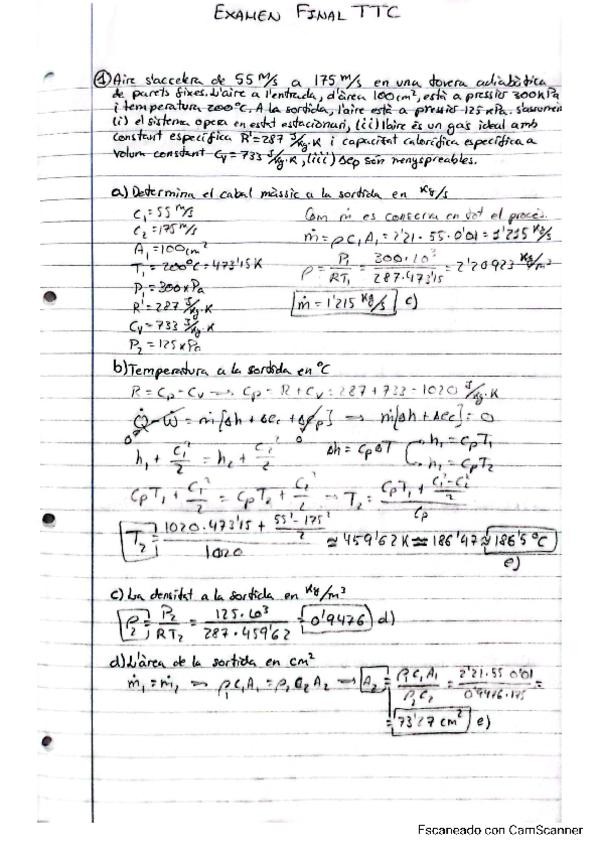 EXAMEN FINAL TTC
① Aire s'accelera de 55 m/s a 175 m/s en una tovera adiabàtica
de parets fixes. L'aire a l'entrada, d'àrea 100 cm², està a pressió 300 kPa
i temperatura 200°C. A la sortida, l'aire està a pressió 125 kPa. S'assumeix
(i) el sistema opera en estat estacionari, (ii) l'aire és un gas ideal amb
constant específica R'=287 J/kg·K i capacitat calorífica específica a
volum constant Cv=733 J/kg·K, (iii) Δep són menyspreables.
a) Determina el cabal màssic a la sortida en kg/s
C₁=55 m/s
Com ṁ es conserva en tot el procés.
C₂=175 m/s
ṁ=ρC₁A₁=2'21·55·0'01=1'215 kg/s
A₁=100cm²
T₁=200°C=473'15K
ρ = P₁/RT₁ = 300·10³/287·473'15 = 2'20923 kg/m³
P₁=300kPa
R'=287 J/kg·K
ṁ=1'215 kg/s c)
Cv=733 J/kg·K
P₂=125kPa
b) Temperatura a la sortida en °C
R=Cp-Cv → Cp=R+Cv=287+733=1020 J/kg·K
Q̇-Ẇ=ṁ[Δh+Δec+Δep] → ṁ[Δh+Δec]=0
0 0
h₁+C₁²/2=h₂+C₂²/2 Δh=CpΔT h₁=CpT₁
h₂=CpT₂
CpT₁+C₁²/2=CpT₂+C₂²/2 → T₂=(CpT₁+(C₁²-C₂²)/2)/Cp
T₂=(1020·473'15+(55²-175²)/2)/1020≃459'62K≃186'47≃186'5°C
e)
c) La densitat a la sortida en kg/m³
ρ₂=P₂/RT₂=125·10³/287·459'62=0'9476 d)
d) L'àrea de la sortida en cm²
ṁ₁=ṁ₂ → ρ₁C₁A₁=ρ₂C₂A₂ → A₂=ρ₁C₁A₁/ρ₂C₂=2'21·55·0'01/0'9476·175=
=73'27 cm² e)
Escaneado con CamScanner